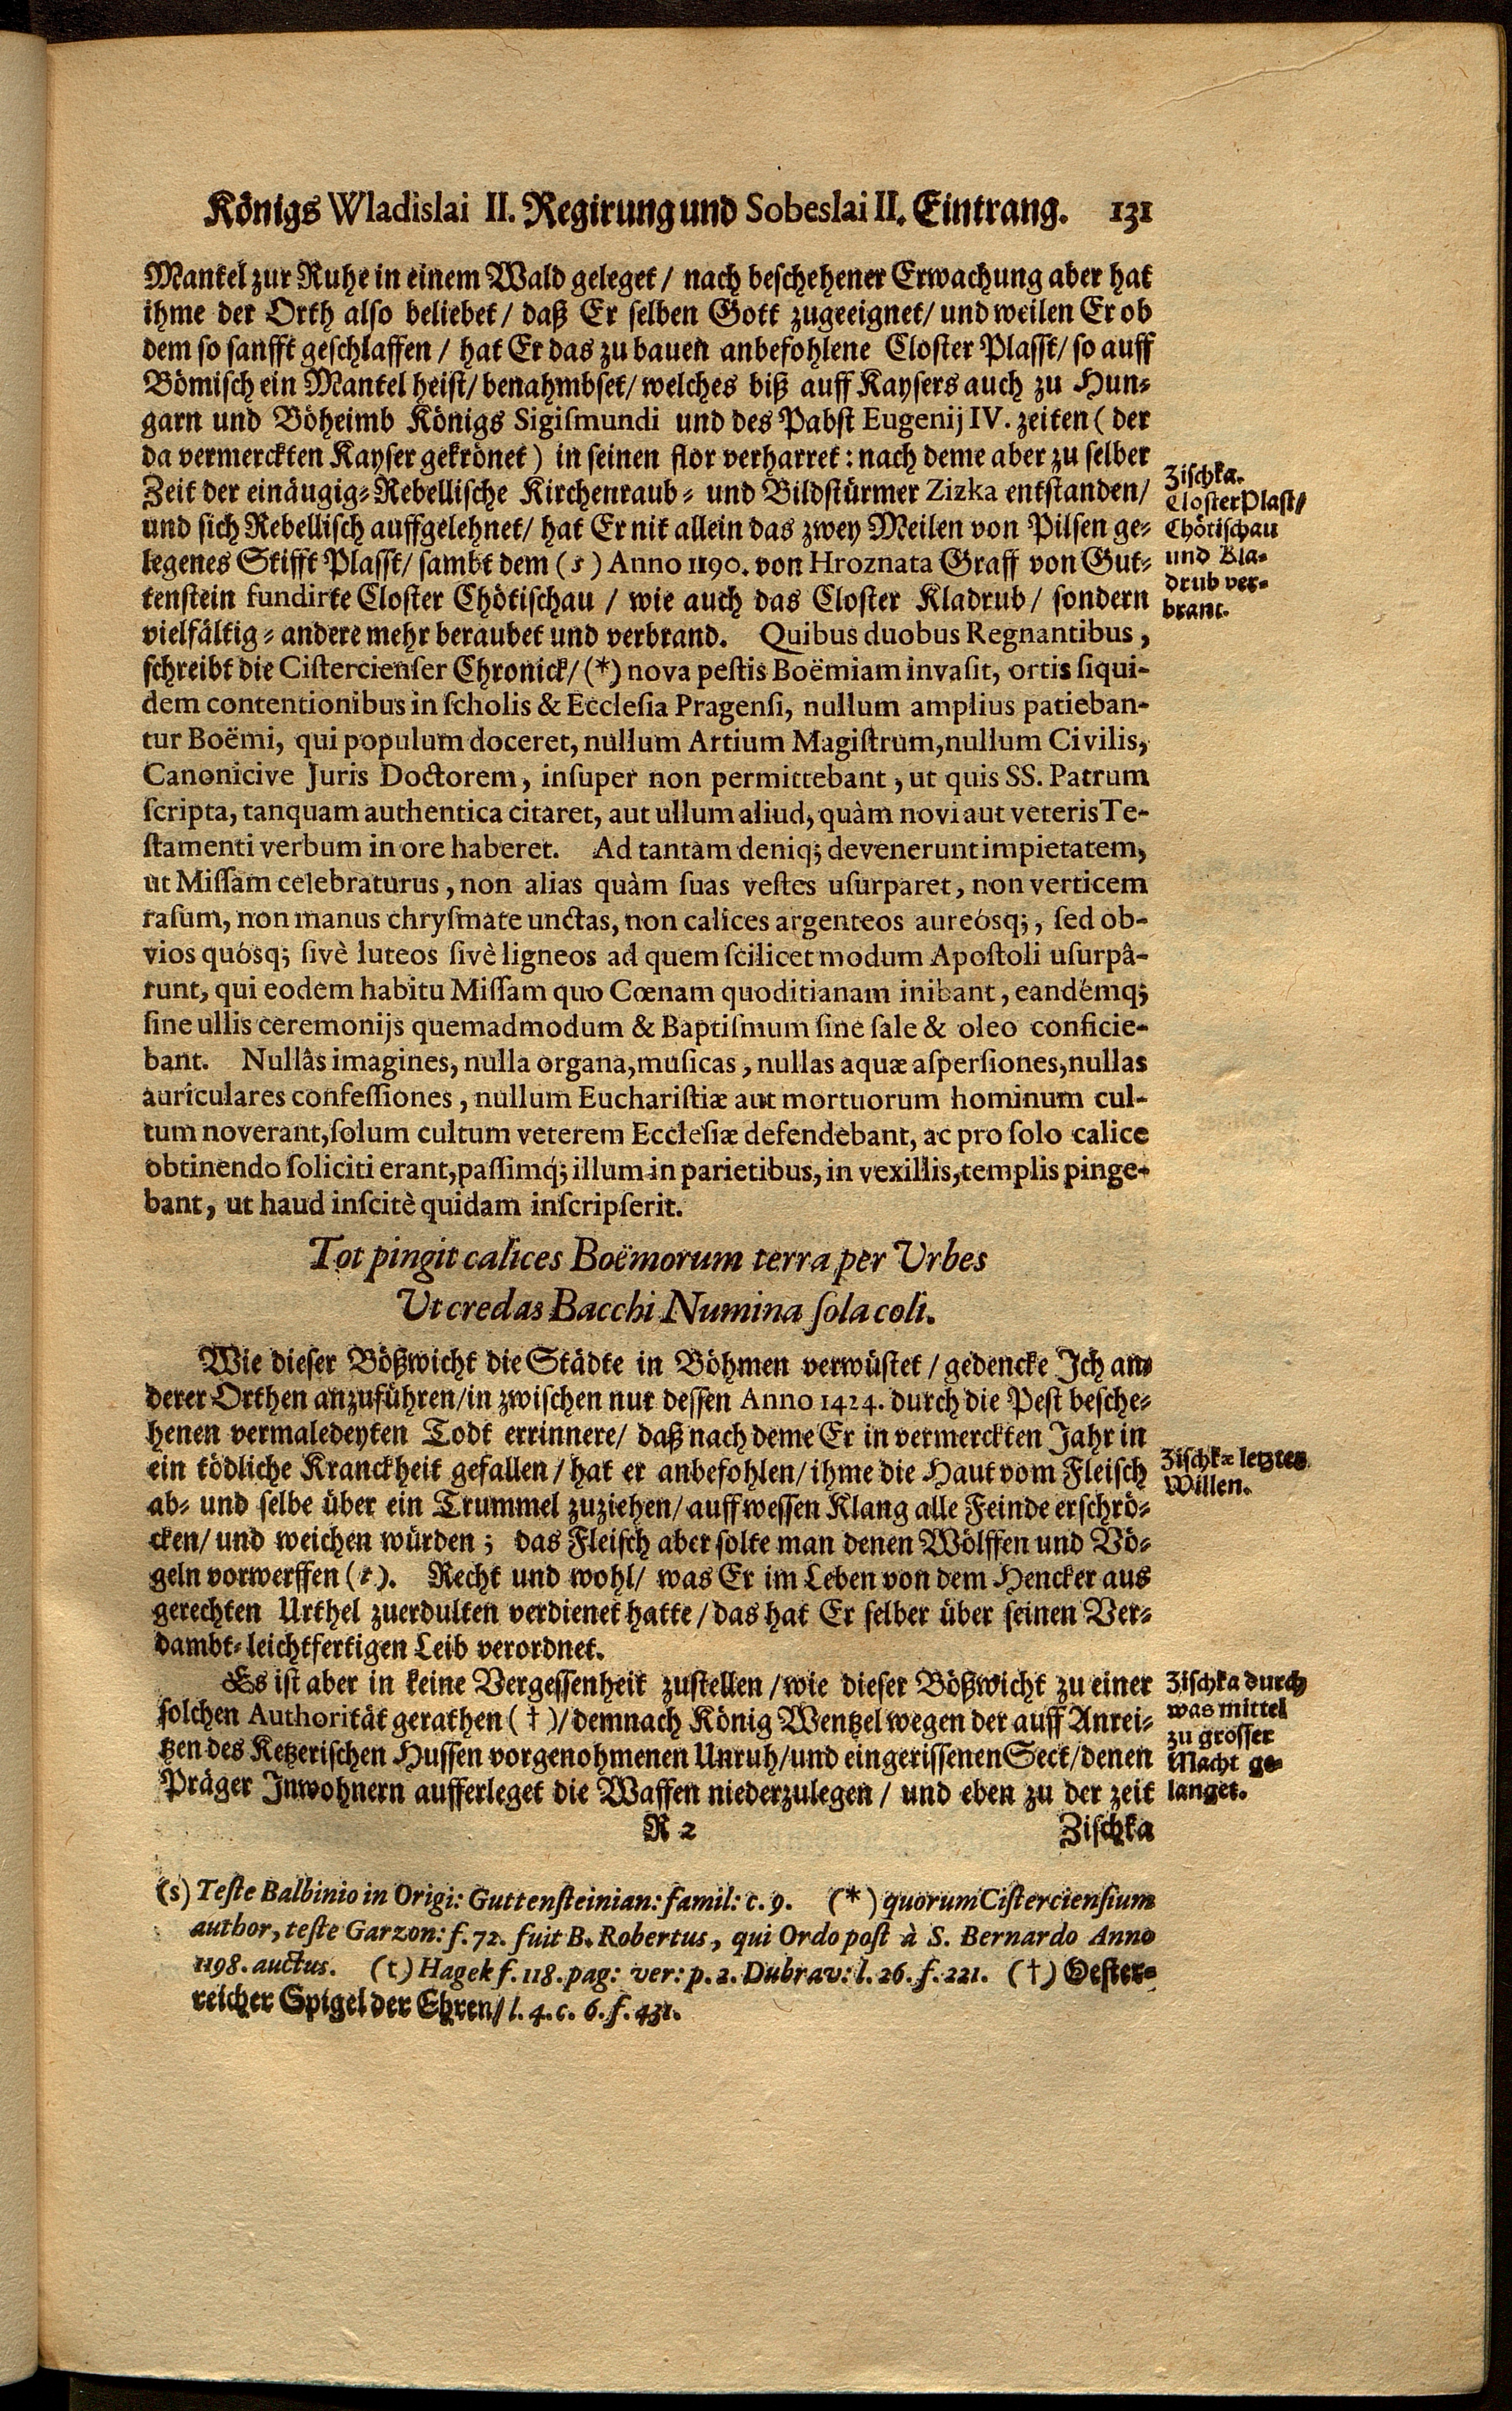 Königs Wladislai II. Regirung und Sobeslai II. Eintrang. 131
Mantel zur Ruhe in einem Wald geleget / nach beschehener Erwachung aber hat
ihme der Orth also beliebet / daß Er selben Gott zugeeignet / und weilen Er ob
dem so sanfft geschlaffen / hat Er das zu bauen anbefohlene Closter Plasst / so auff
Bömisch ein Mantel heist / benahmbset / welches biß auff Kaysers auch zu Hun-
garn und Böheimb Königs Sigismundi und des Pabst Eugenij IV. zeiten ( der
da vermerckten Kayser gekrönet ) in seinen flor verharret : nach deme aber zu selber
Zeit der einäugig-Rebellische Kirchenraub- und Bildstürmer Zizka entstanden /
und sich Rebellisch auffgelehnet / hat Er nit allein das zwey Meilen von Pilsen ge-
legenes Stifft Plasst / sambt dem (s) Anno 1190. von Hroznata Graff von Gut-
tenstein fundirte Closter Chötischau / wie auch das Closter Kladrub / sondern
vielfältig-andere mehr beraubet und verbrand. Quibus duobus Regnantibus,
schreibt die Cistercienser Chronick / (*) nova pestis Boëmiam invasit, ortis siqui-
dem contentionibus in scholis & Ecclesia Pragensi, nullum amplius patieban-
tur Boëmi, qui populum doceret, nullum Artium Magistrum, nullum Civilis,
Canonicive Juris Doctorem, insuper non permittebant, ut quis SS. Patrum
scripta, tanquam authentica citaret, aut ullum aliud, quàm novi aut veteris Te-
stamenti verbum in ore haberet. Ad tantam deniq; devenerunt impietatem,
ut Missam celebraturus, non alias quàm suas vestes usurparet, non verticem
rasum, non manus chrysmate unctas, non calices argenteos aureósq;, sed ob-
vios quósq; sivè luteos sivè ligneos ad quem scilicet modum Apostoli usurpâ-
runt, qui eodem habitu Missam quo Cœnam quoditianam inibant, eandémq;
sine ullis ceremonijs quemadmodum & Baptismum sine sale & oleo conficie-
bant. Nullâs imagines, nulla organa, musicas, nullas aquæ aspersiones, nullas
auriculares confessiones, nullum Eucharistiæ aut mortuorum hominum cul-
tum noverant, solum cultum veterem Ecclesiæ defendebant, ac pro solo calice
obtinendo soliciti erant, passimq́; illum in parietibus, in vexillis, templis pinge-
bant, ut haud inscitè quidam inscripserit.
Tot pingit calices Boëmorum terra per Urbes
Ut credas Bacchi Numina sola coli.
Wie dieser Bößwicht die Städte in Böhmen verwüstet / gedencke Ich an-
derer Orthen anzuführen / in zwischen nur dessen Anno 1424. durch die Pest besche-
henen vermaledeyten Todt errinnere / daß nach deme Er in vermerckten Jahr in
ein tödliche Kranckheit gefallen / hat er anbefohlen / ihme die Haut vom Fleisch
ab- und selbe über ein Trummel zuziehen / auff wessen Klang alle Feinde erschrö-
cken / und weichen würden ; das Fleisch aber solte man denen Wölffen und Vö-
geln vorwerffen (t). Recht und wohl / was Er im Leben von dem Hencker aus
gerechten Urthel zuerdulten verdienet hatte / das hat Er selber über seinen Ver-
dambt-leichtfertigen Leib verordnet.
Es ist aber in keine Vergessenheit zustellen / wie dieser Bößwicht zu einer
solchen Authorität gerathen (†) / demnach König Wentzel wegen der auff Anrei-
tzen des Ketzerischen Hussen vorgenohmenen Unruh / und eingerissenen Sect / denen
Präger Inwohnern aufferleget die Waffen niederzulegen / und eben zu der zeit
R 2 Zischka
Zischka.
Closter Plast /
Chötischau
und Kla-
drub ver-
brant.
Zischkæ letztes
Willen.
Zischka durch
was mittel
zu grosser
Macht ge-
langet.
(s) Teste Balbinio in Origi: Guttensteinian: famil: c. 9. (*) quorum Cisterciensium
author, teste Garzon: f. 72. fuit B. Robertus, qui Ordo post à S. Bernardo Anno
1198. auctus. (t) Hagek f. 118. pag: ver: p. 2. Dubrav: l. 26. f. 221. (†) Oester-
reicher Spigel der Ehren / l. 4. c. 6. f. 431.